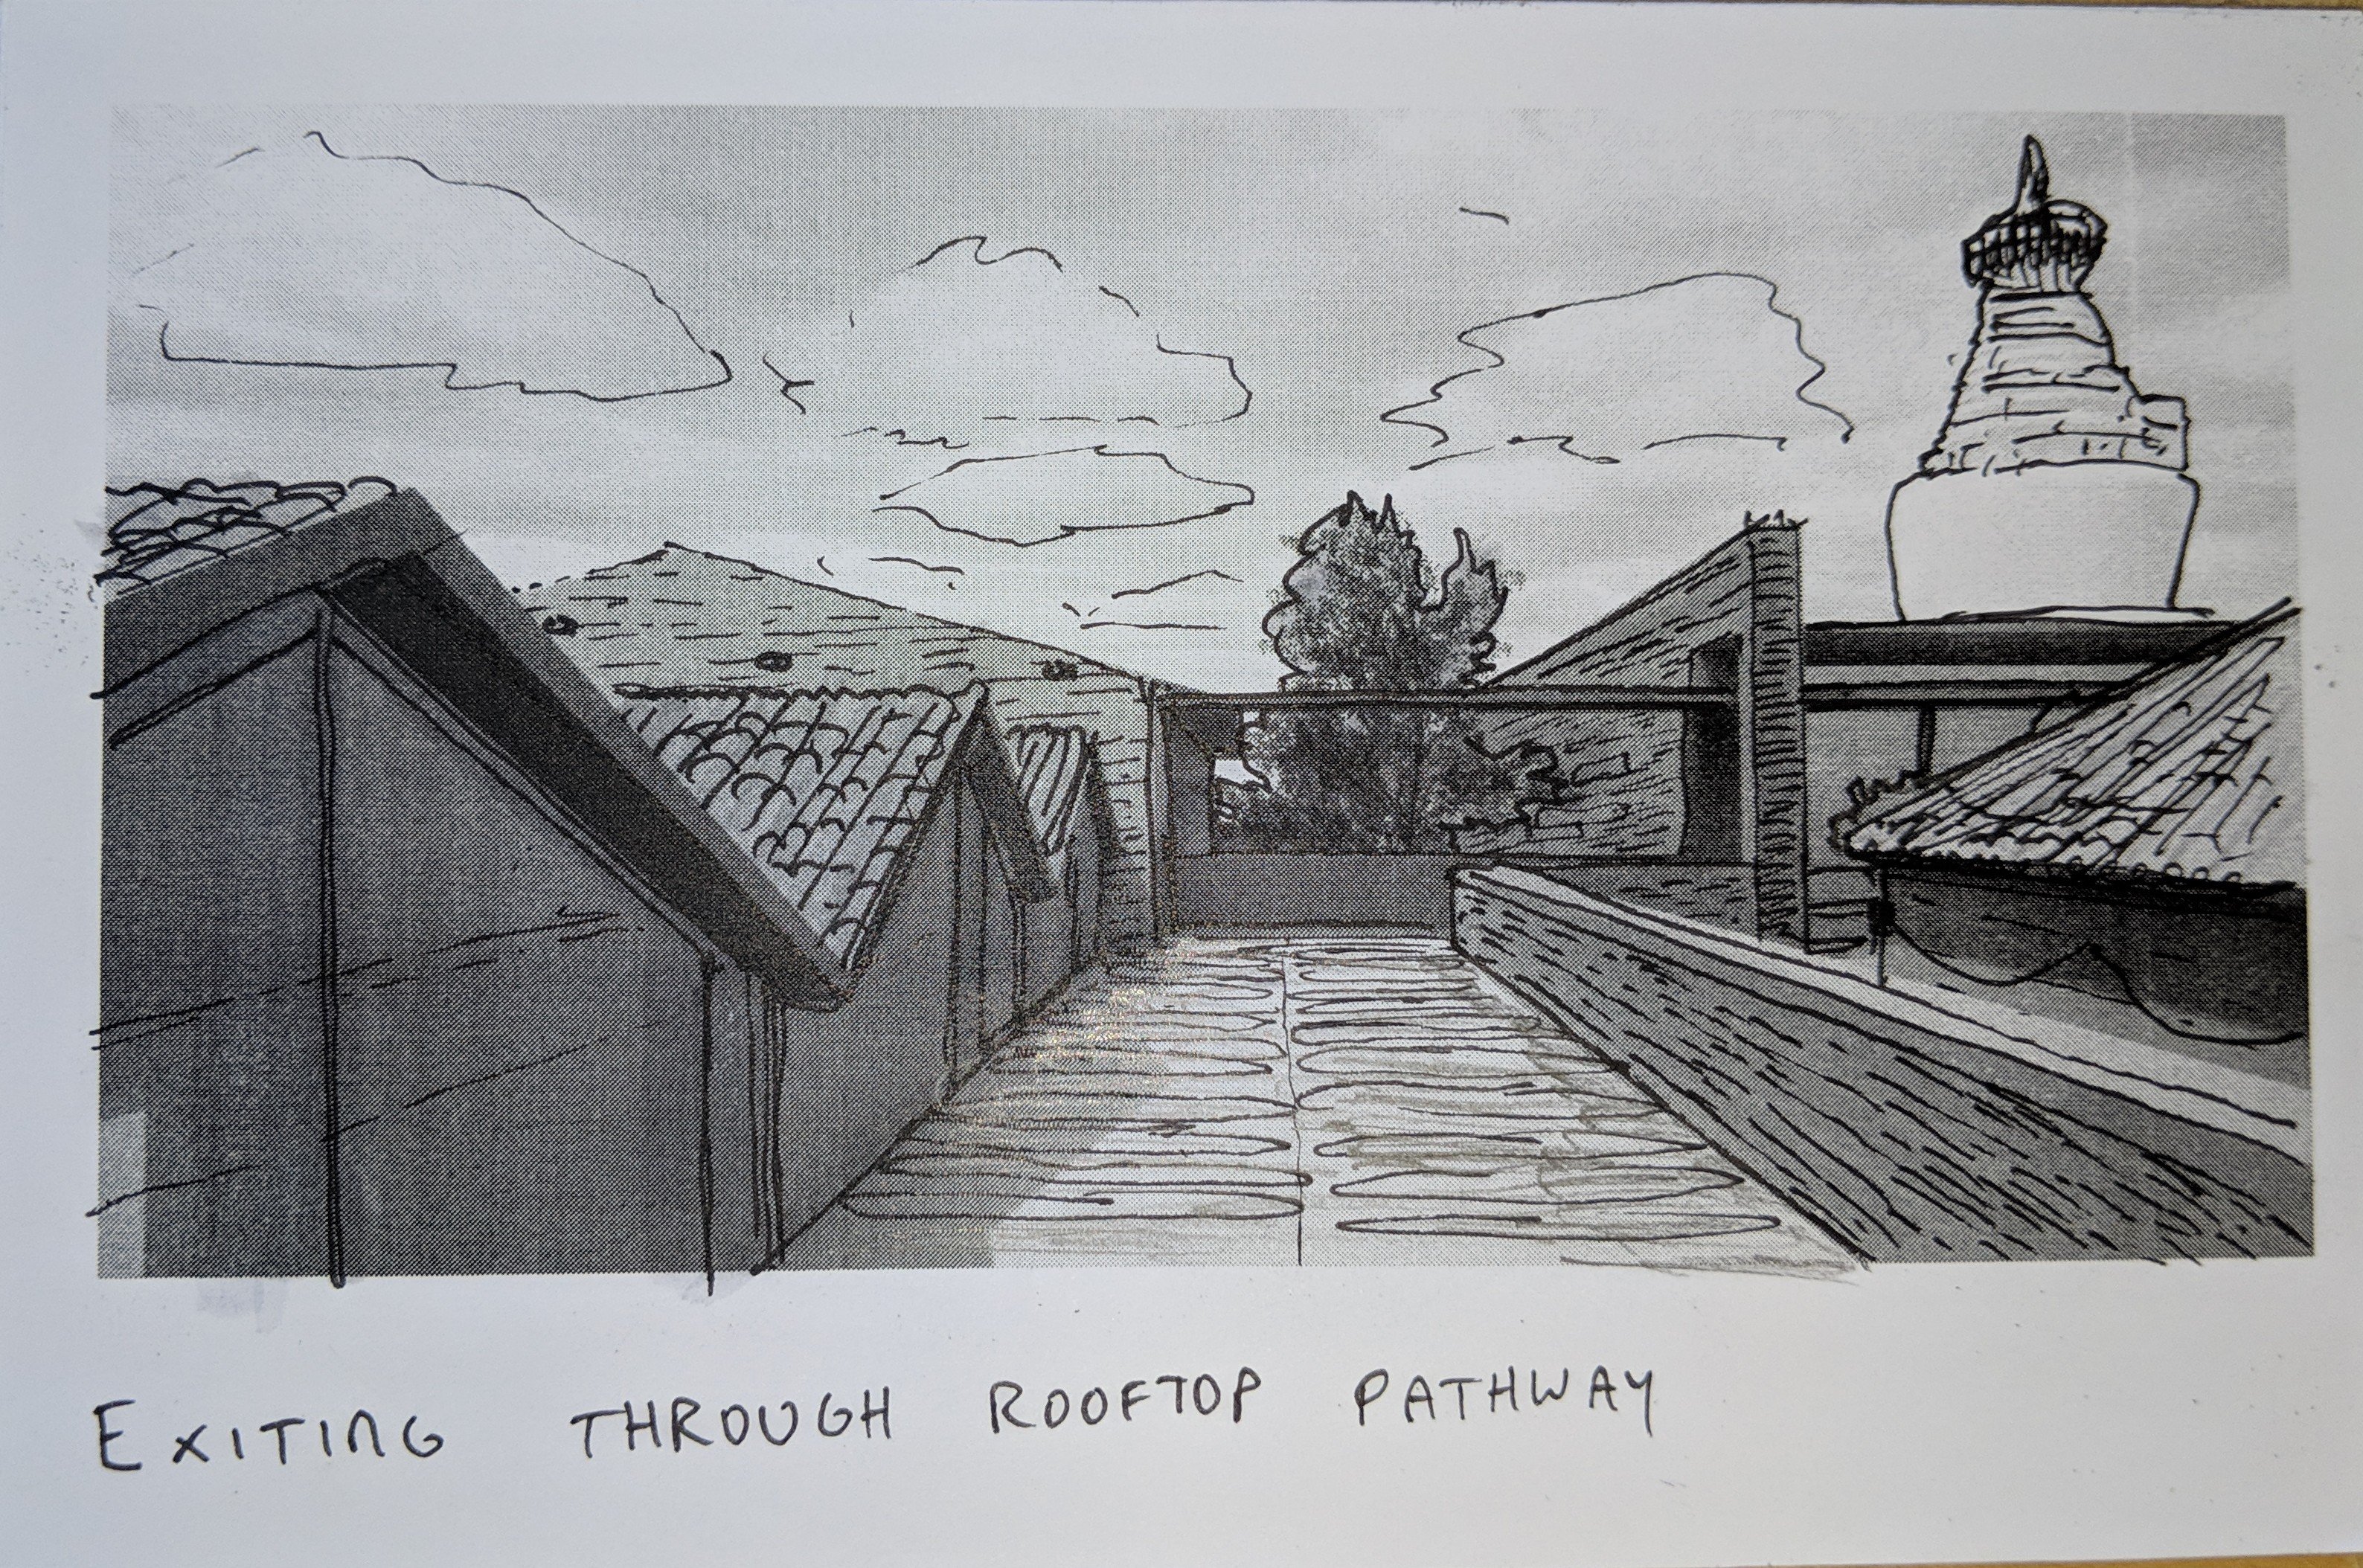 EXITING THROUGH ROOFTOP PATHWAY